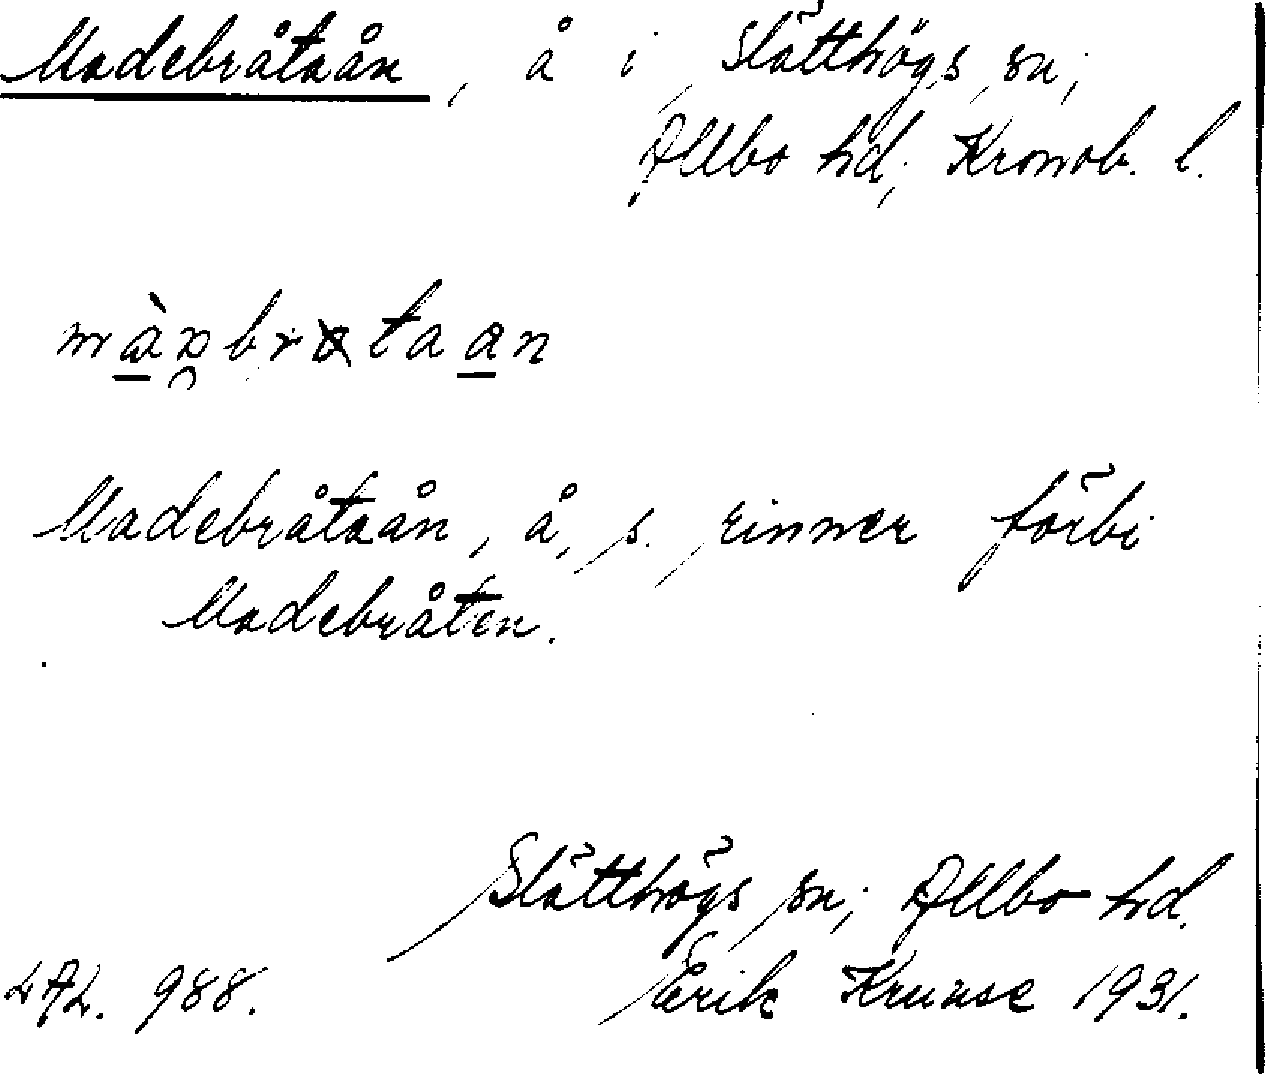 Madebråtaån, å i Slätthögs sn;
Allbo hd; Kronob. l.
Madebråtaån, å, s. rinner förbi
Madebråten.
Slätthögs sn; Allbo hd.
LAL. 988. Erik Kruuse 1931.